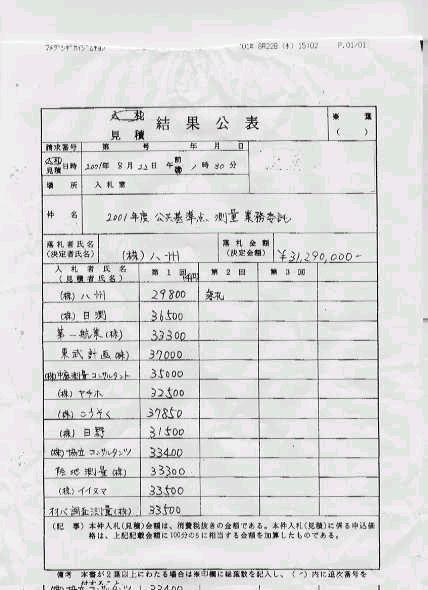 '01年 8月22日(水) 15:02 P.01/01
入札
見積 結果公表
※ 葉
( )
請求番号 第 号 年 月 日
入札
見積 日時 2001年 8月22日 午前後 1時30分
場所 入札室
件名 2001年度 公共基準点 測量業務委託
落札者氏名
(決定者氏名) (株)八州
落札金額
(決定金額) ¥31,290,000-
入札者氏名
(見積者氏名) 第1回 (千円) 第2回 第3回
(株) 八州 29800 落札
(株) 日測 36500
第一航業(株) 33300
東武計画(株) 37000
(株)中庭測量コンサルタント 35000
(株) ヤチホ 32500
(株) こうそく 37850
(株) 日野 31500
(株)協立コンサルタンツ 33400
陸地測量(株) 33300
(株)イイヌマ 33500
測量(株) 33500
(記 事) 本件入札(見積)金額は、消費税抜きの金額である。本件入札(見積)に係る申込価
格は、上記記載金額に100分の5に相当する金額を加算したものである。
備考 本書が2葉以上にわたる場合は※印欄に総葉数を記入し、( )内に逓次番号を